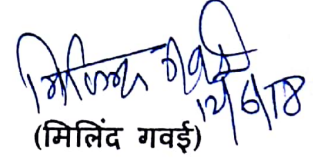 मिलिंद गवई
12/6/18
(मिलिंद गवई)